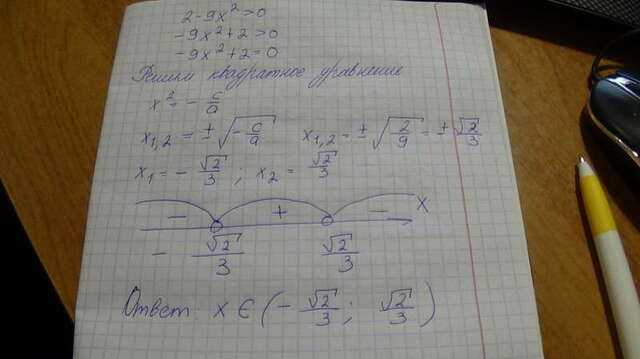 2-9x²>0
-9x²+2>0
-9x²+2=0
Решим квадратное уравнение
x²=-c/a
x₁,₂=±√(-c/a) x₁,₂=±√(2/9)=±√2/3
x₁=-√2/3; x₂=√2/3
- + - x
-√2/3 √2/3
Ответ: x∈(-√2/3; √2/3)